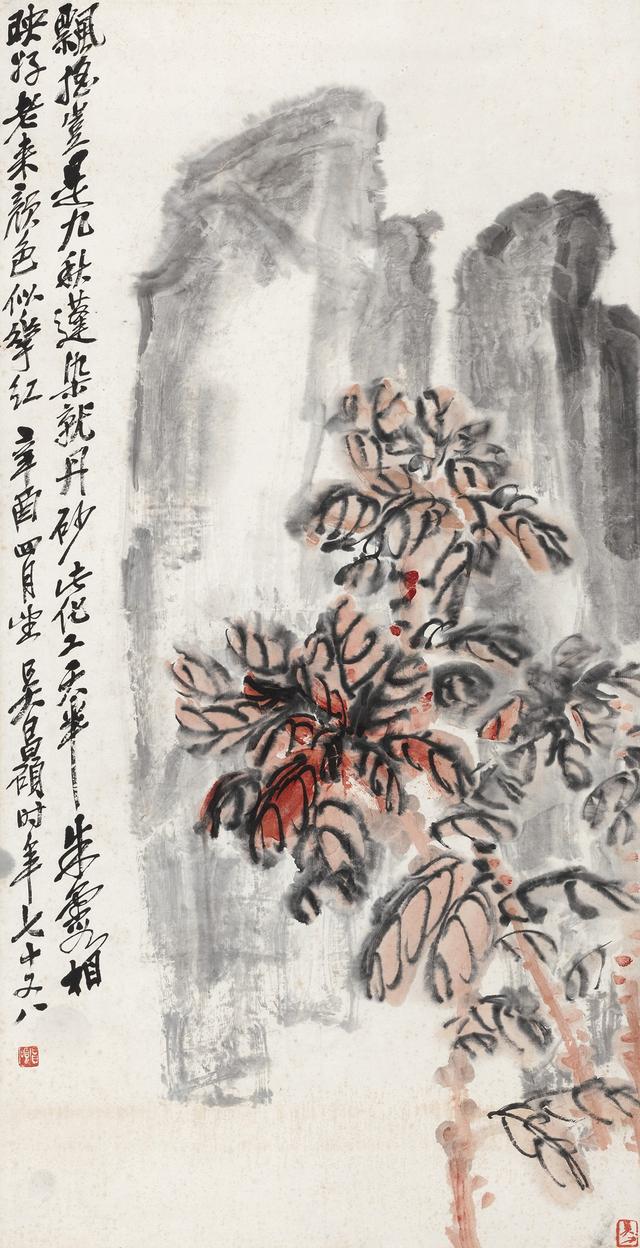 飄搖豈是九秋蓬染就丹砂化工天半朱霞相
映好老来顏色似華紅 辛酉四月 吴昌碩时年七十又八